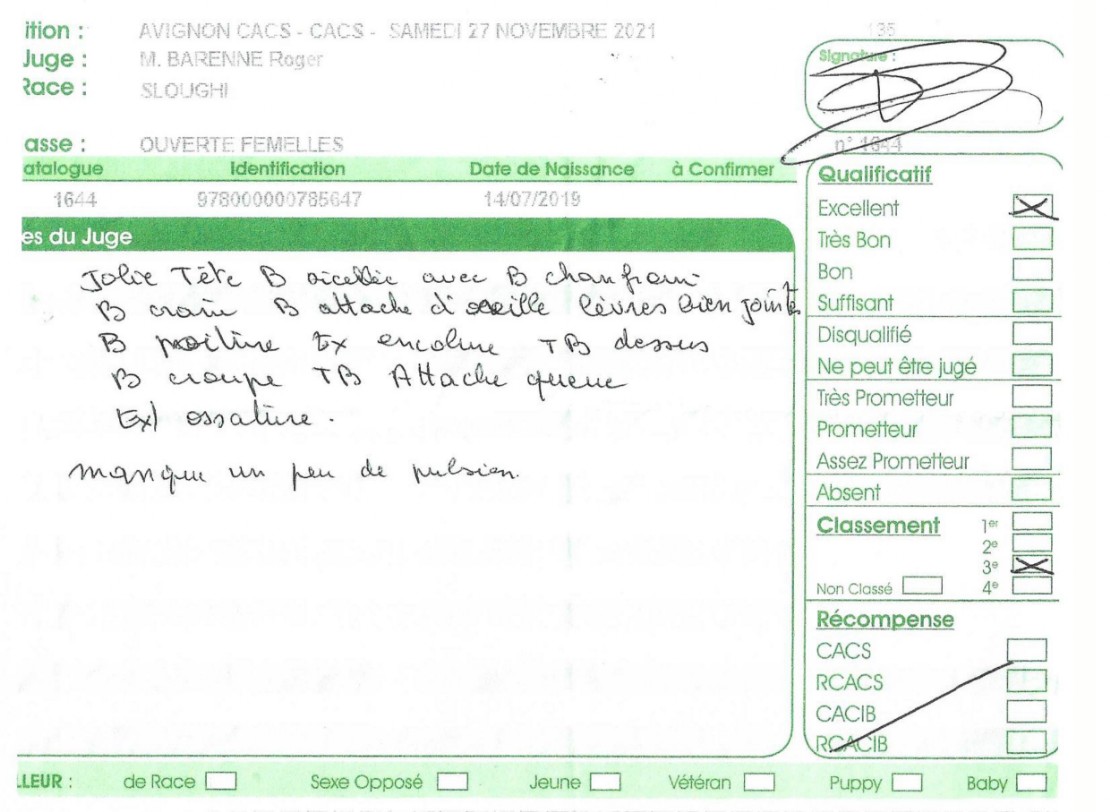 ition : AVIGNON CACS - CACS - SAMEDI 27 NOVEMBRE 2021 135
Juge : M. BARENNE Roger Signature :
Race : SLOUGHI
asse : OUVERTE FEMELLES n° 1644
atalogue Identification Date de Naissance à Confirmer
1644 978000000785647 14/07/2019
es du Juge
Jolie Tête B avec B chanfrein
B crâne B attache d'oreille lèvres bien jointe
B poitrine Ex encolure TB dessus
B croupe TB Attache queue
Ex ossature.
manque un peu de pulsion
Qualificatif
Excellent
Très Bon
Bon
Suffisant
Disqualifié
Ne peut être jugé
Très Prometteur
Prometteur
Assez Prometteur
Absent
Classement 1er
2e
3e
Non Classé 4e
Récompense
CACS
RCACS
CACIB
RCACIB
LLEUR : de Race Sexe Opposé Jeune Vétéran Puppy Baby